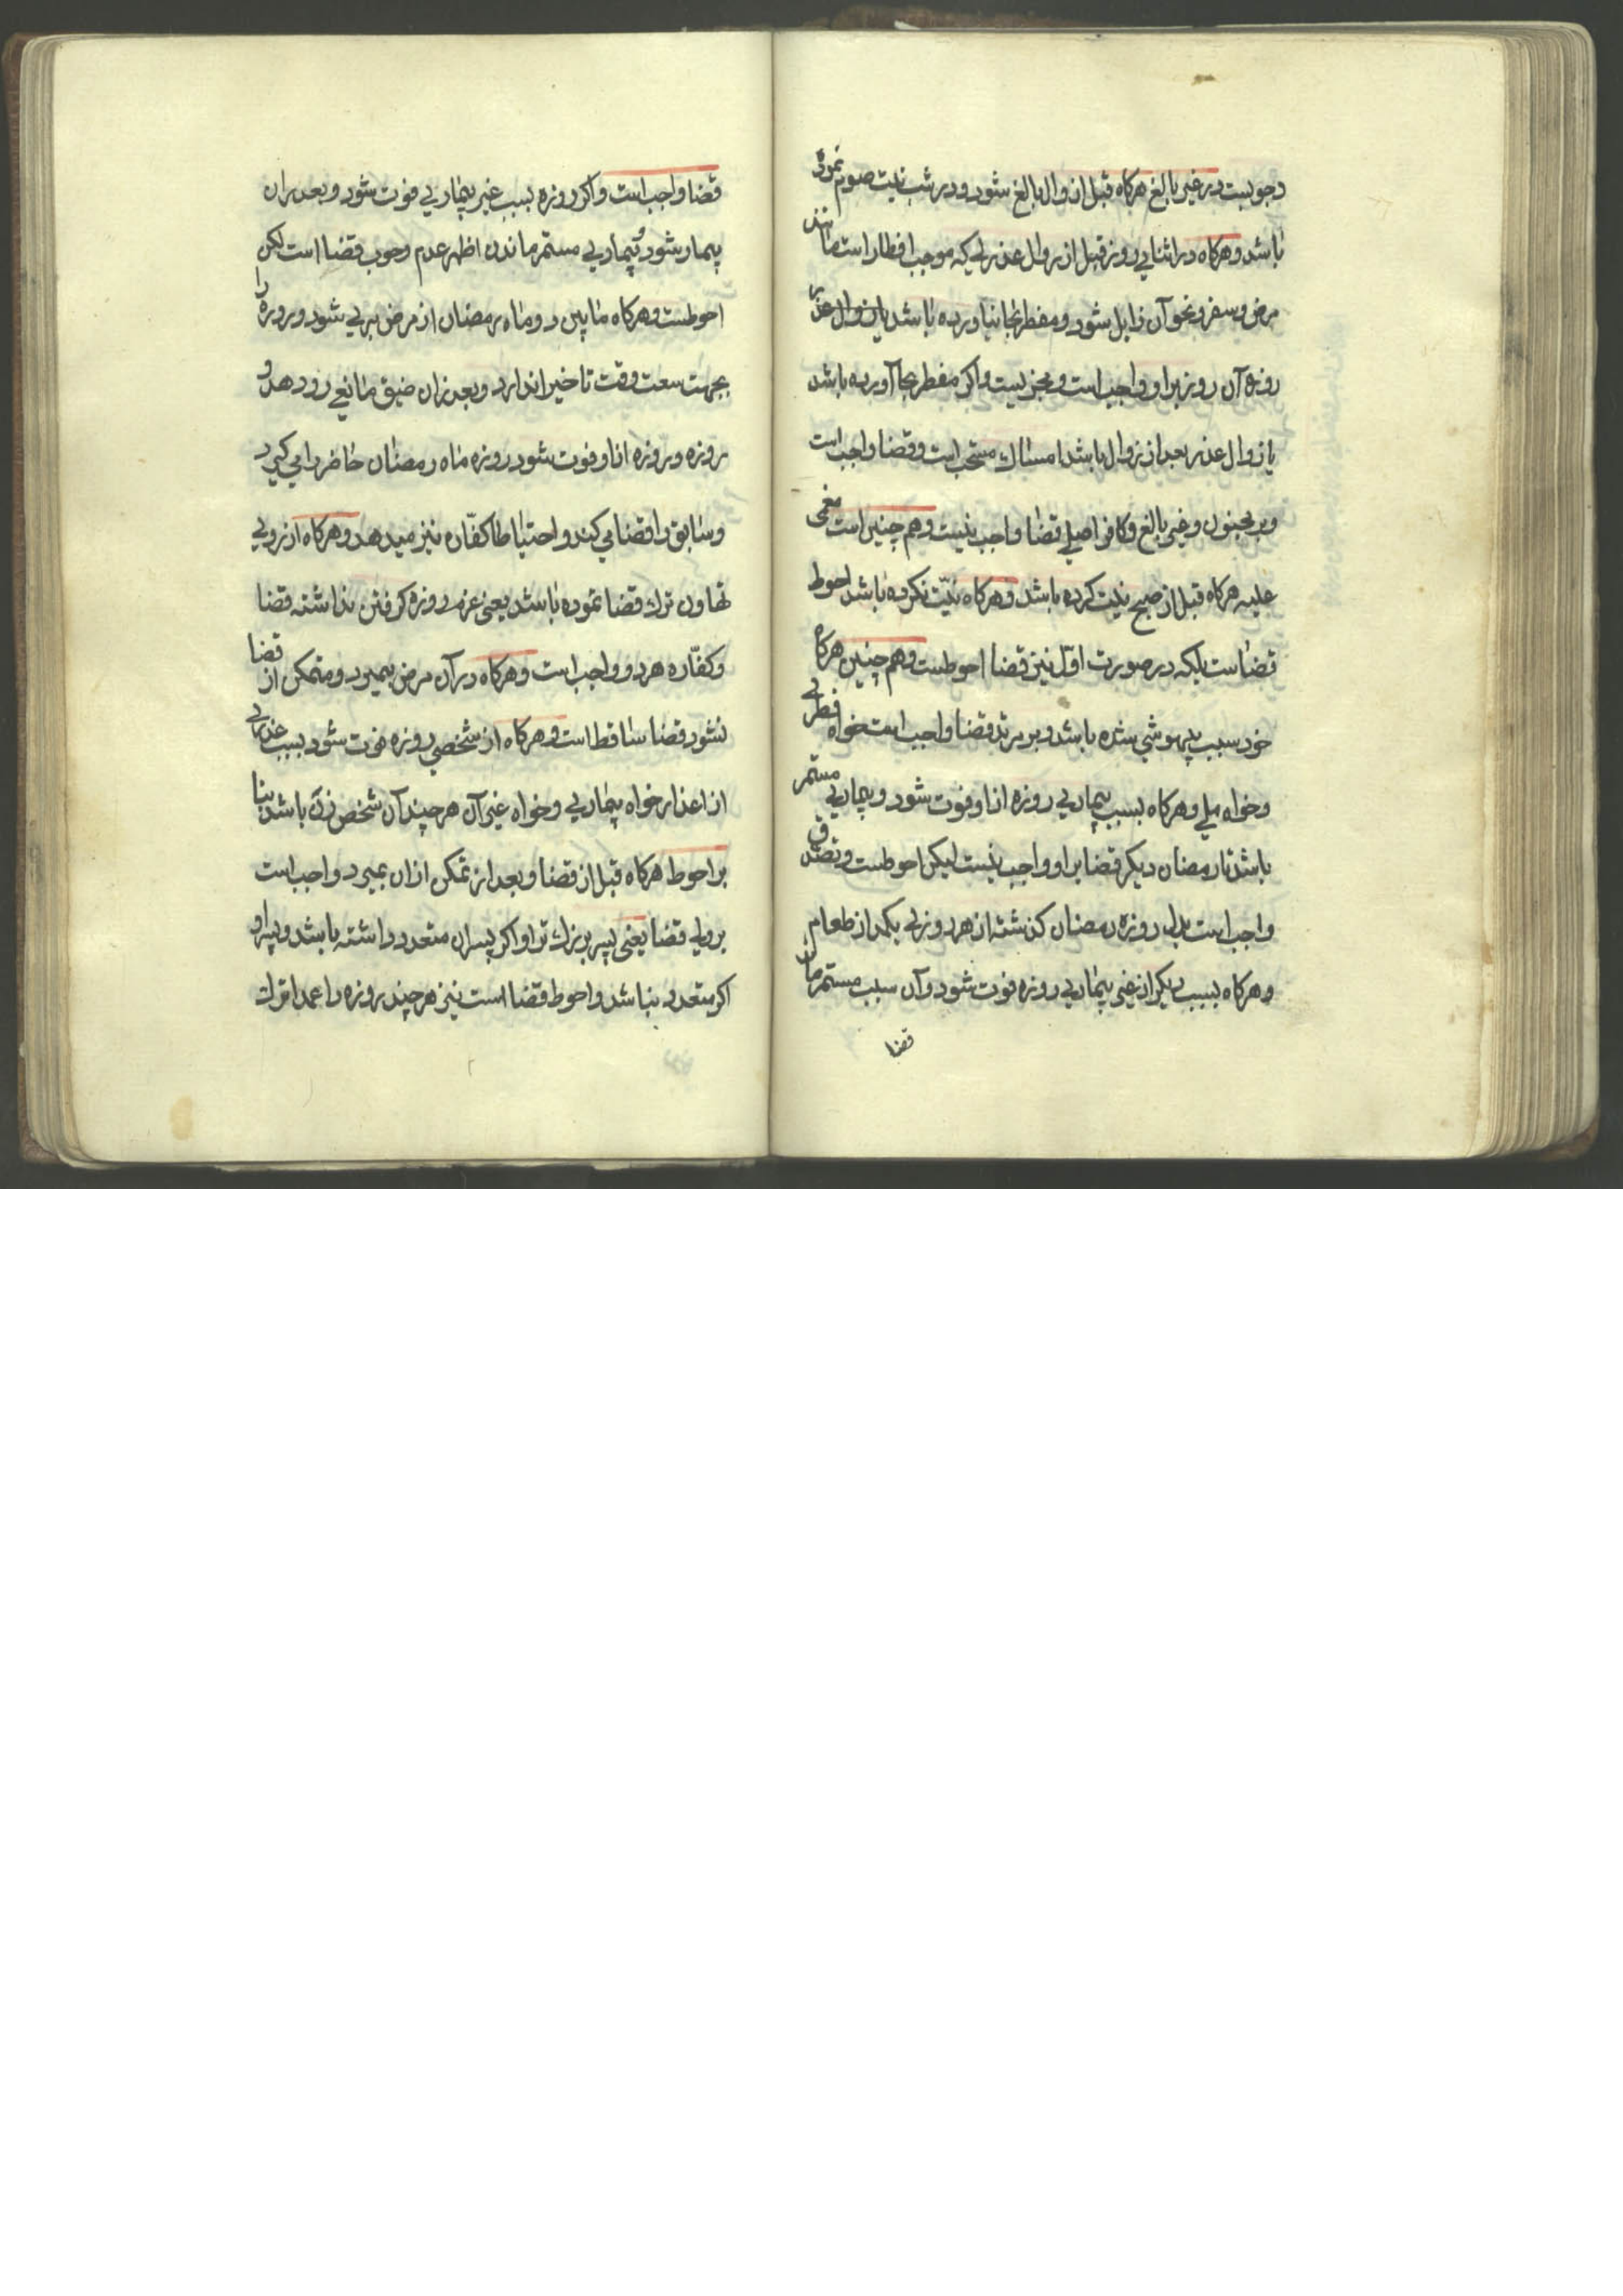 وجوبست در غیر بالغ هرکاه قبل از زوال بالغ شود و در شب نیت صوم نموده
باشد و هرکاه در اثنای روز قبل از زوال عذری که موجب افطار است مانند
مرض و سفر و نحو آن زایل شود و مفطر بجا نیاورده باشد یا زوال عذر
روزه آن روز بر او واجب است و مجزیست و اکر مفطر بجا آورده باشد
یا زوال عذر بعد از زوال باشد امساك مستحب است و قضا واجب است
و بر مجنون و غیر بالغ و کافر اصلی قضا واجب نیست و هم چنین است مغمی
علیه هرکاه قبل از صبح نیت کرده باشد و هرکاه نیّت نکرده باشد احوط
قضا است بلکه در صورت اوّل نیز قضا احوطست و هم چنین هرکاه
خود سبب بیهوشی شده باشد و بر مرتد قضا واجب است خواه فطری
و خواه ملی و هرکاه بسبب بیماریی روزه از او فوت شود و بیماریی مستمر
باشد تا رمضان دیکر قضا بر او واجب نیست لیکن احوطست و تصدق
واجب است بدل روزه رمضان کذشته از هر روزی یکمد از طعام
و هرکاه بسبب دیکر از غیر بیماریی روزه فوت شود و آن سبب مستمر ماند
قضا
قضا واجب است و اکر روزه بسبب غیر بیماریی فوت شود و بعد از ان
بیمار شود و بیماریی مستمر ماندن اظهر عدم وجوب قضا است لکن
احوطست و هرکاه مابین دو ماه رمضان از مرض بری شود و روزه را
بجهت سعت وقت تاخیر اندازد و بعد از ان ضیق مانعی رو دهد و
روزه از او فوت شود روزه ماه رمضان حاضر را می کیرد
و سابق را قضا می کند و احتیاطا کفّاره نیز میدهد و هرکاه از روی
تهاون ترك قضا نموده باشد یعنی عزم روزه کرفتن نداشته قضا
و کفّاره هر دو واجب است و هرکاه در آن مرض بمیرد و متمکن از قضا
نشود قضا ساقط است و هرکاه از شخصی روزه فوت شود بسبب عذری
از اعذار خواه بیماریی و خواه غیر آن هر چند آن شخص زن باشد بنا
بر احوط هرکاه قبل از قضا و بعد از تمکن از ان بمیرد واجب است
بر ولی قضا یعنی پسر بزرك تر او اکر پسران متعدد داشته باشد و پسر او
اکر متعدد نباشد و احوط قضا است نیز هر چند روزه را عمدا ترك